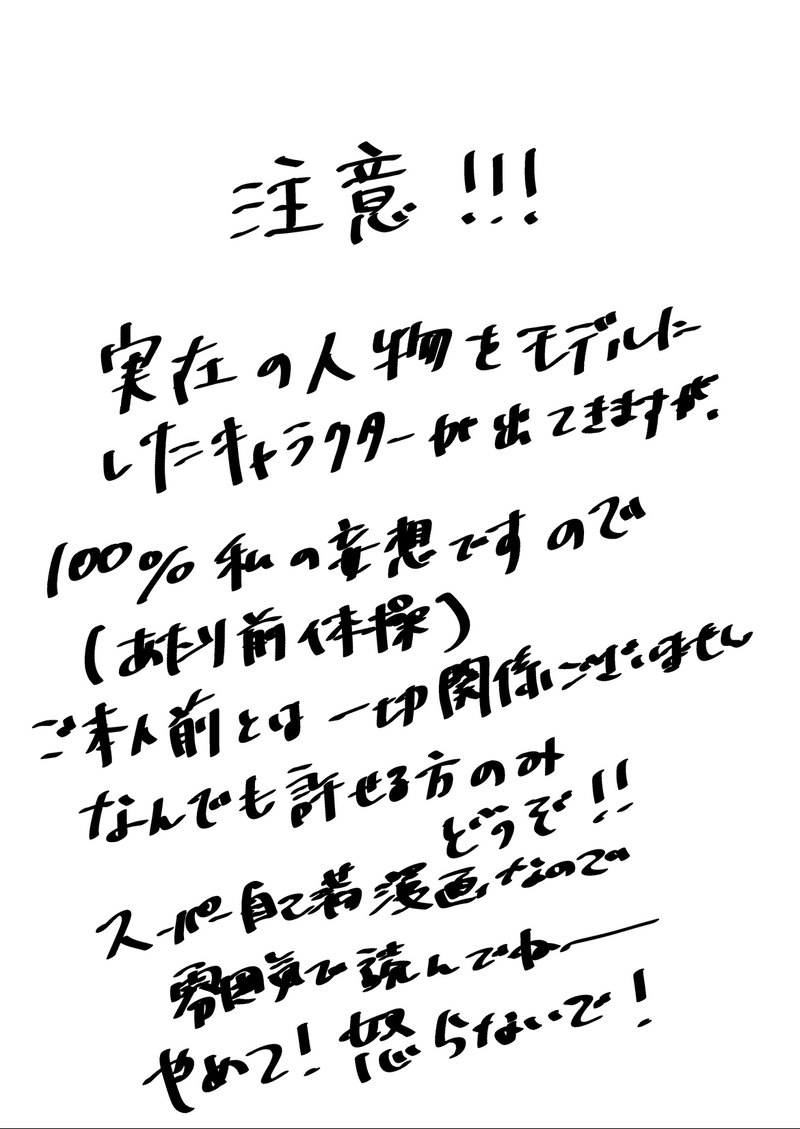 注意!!!
実在の人物をモデルに
したキャラクターが出てきますが、
100%私の妄想ですので
(あたり前体操)
ご本人前とは一切関係ございません
なんでも許せる方のみ
どうぞ!!
スーパー自己満漫画なので
雰囲気で読んでねー
やめて!怒らないで!